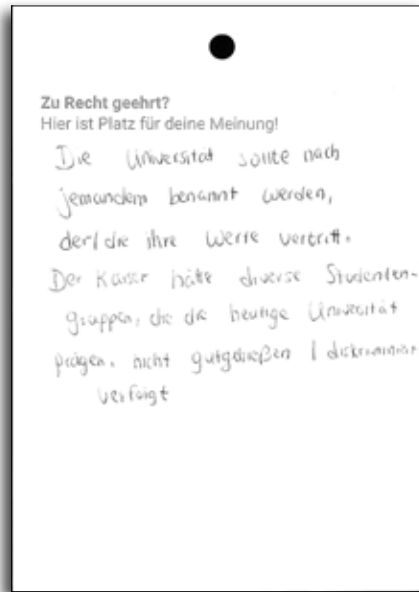 Zu Recht geehrt?
Hier ist Platz für deine Meinung!
Die Universität sollte nach
jemandem benannt werden,
der/die ihre Werte vertritt.
Der Kaiser hätte diverse Studenten-
gruppen, die die heutige Universität
prägen, nicht gutgeheißen / diskriminiert
verfolgt